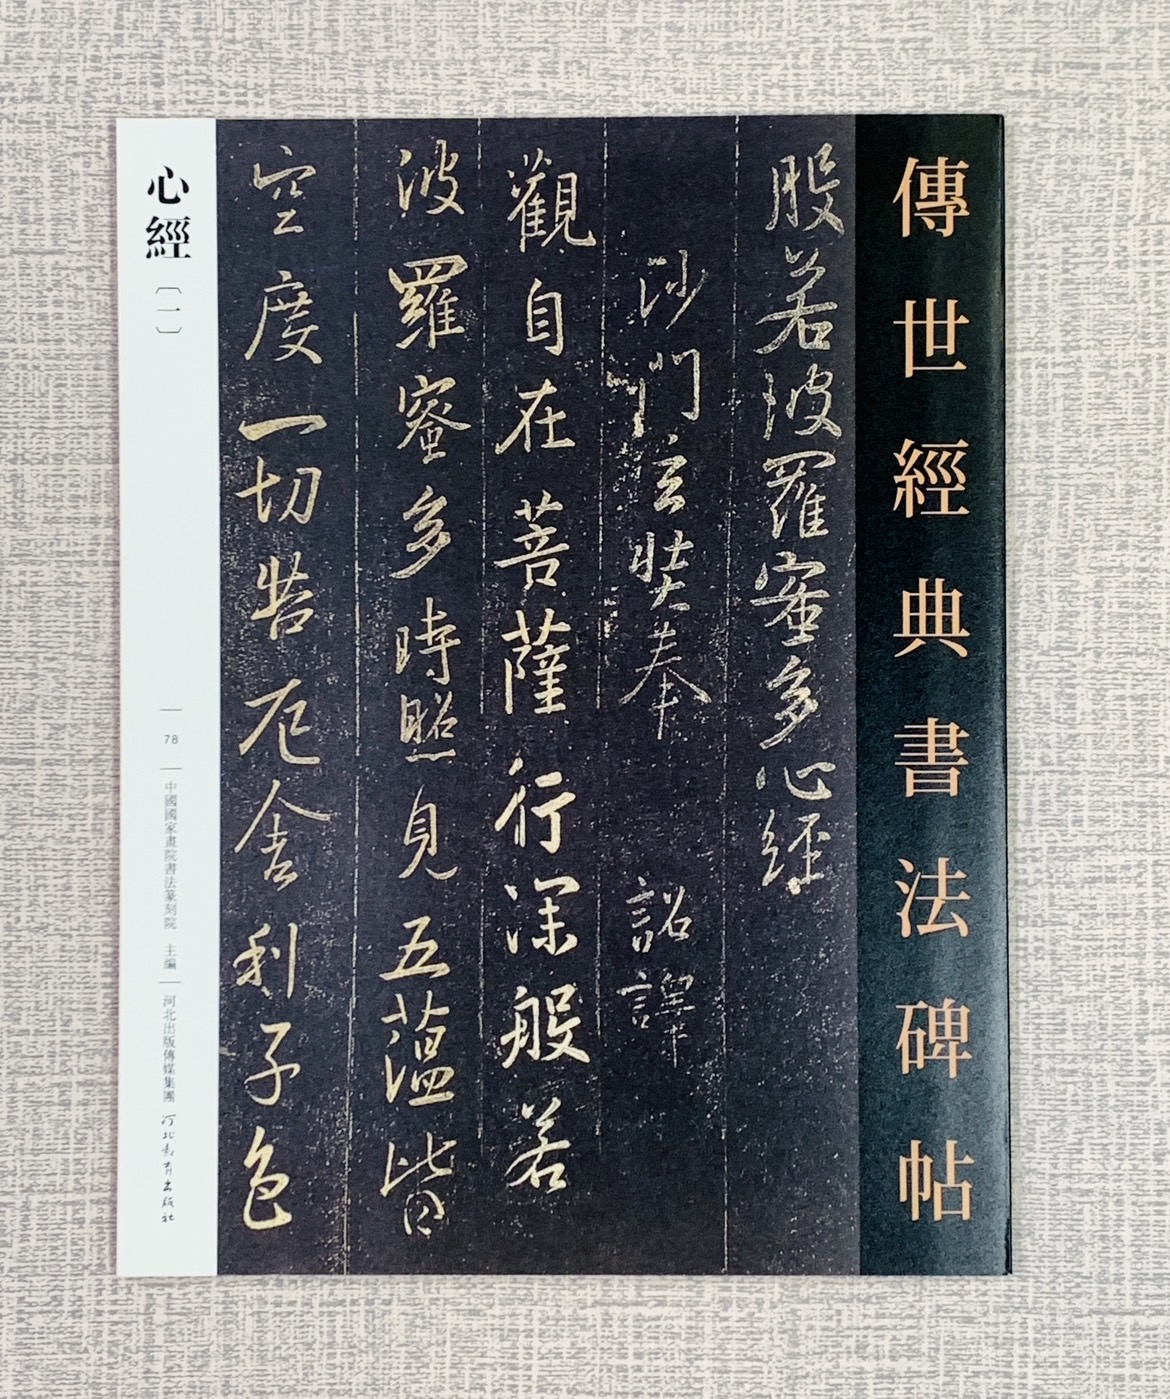 傳世經典書法碑帖
般若波羅蜜多心經
沙門玄奘奉 詔譯
觀自在菩薩行深般若
波羅蜜多時照見五蘊皆
空度一切苦厄舍利子色
心經
〔一〕
78
中國國家畫院書法篆刻院 主編
河北出版傳媒集團 河北教育出版社